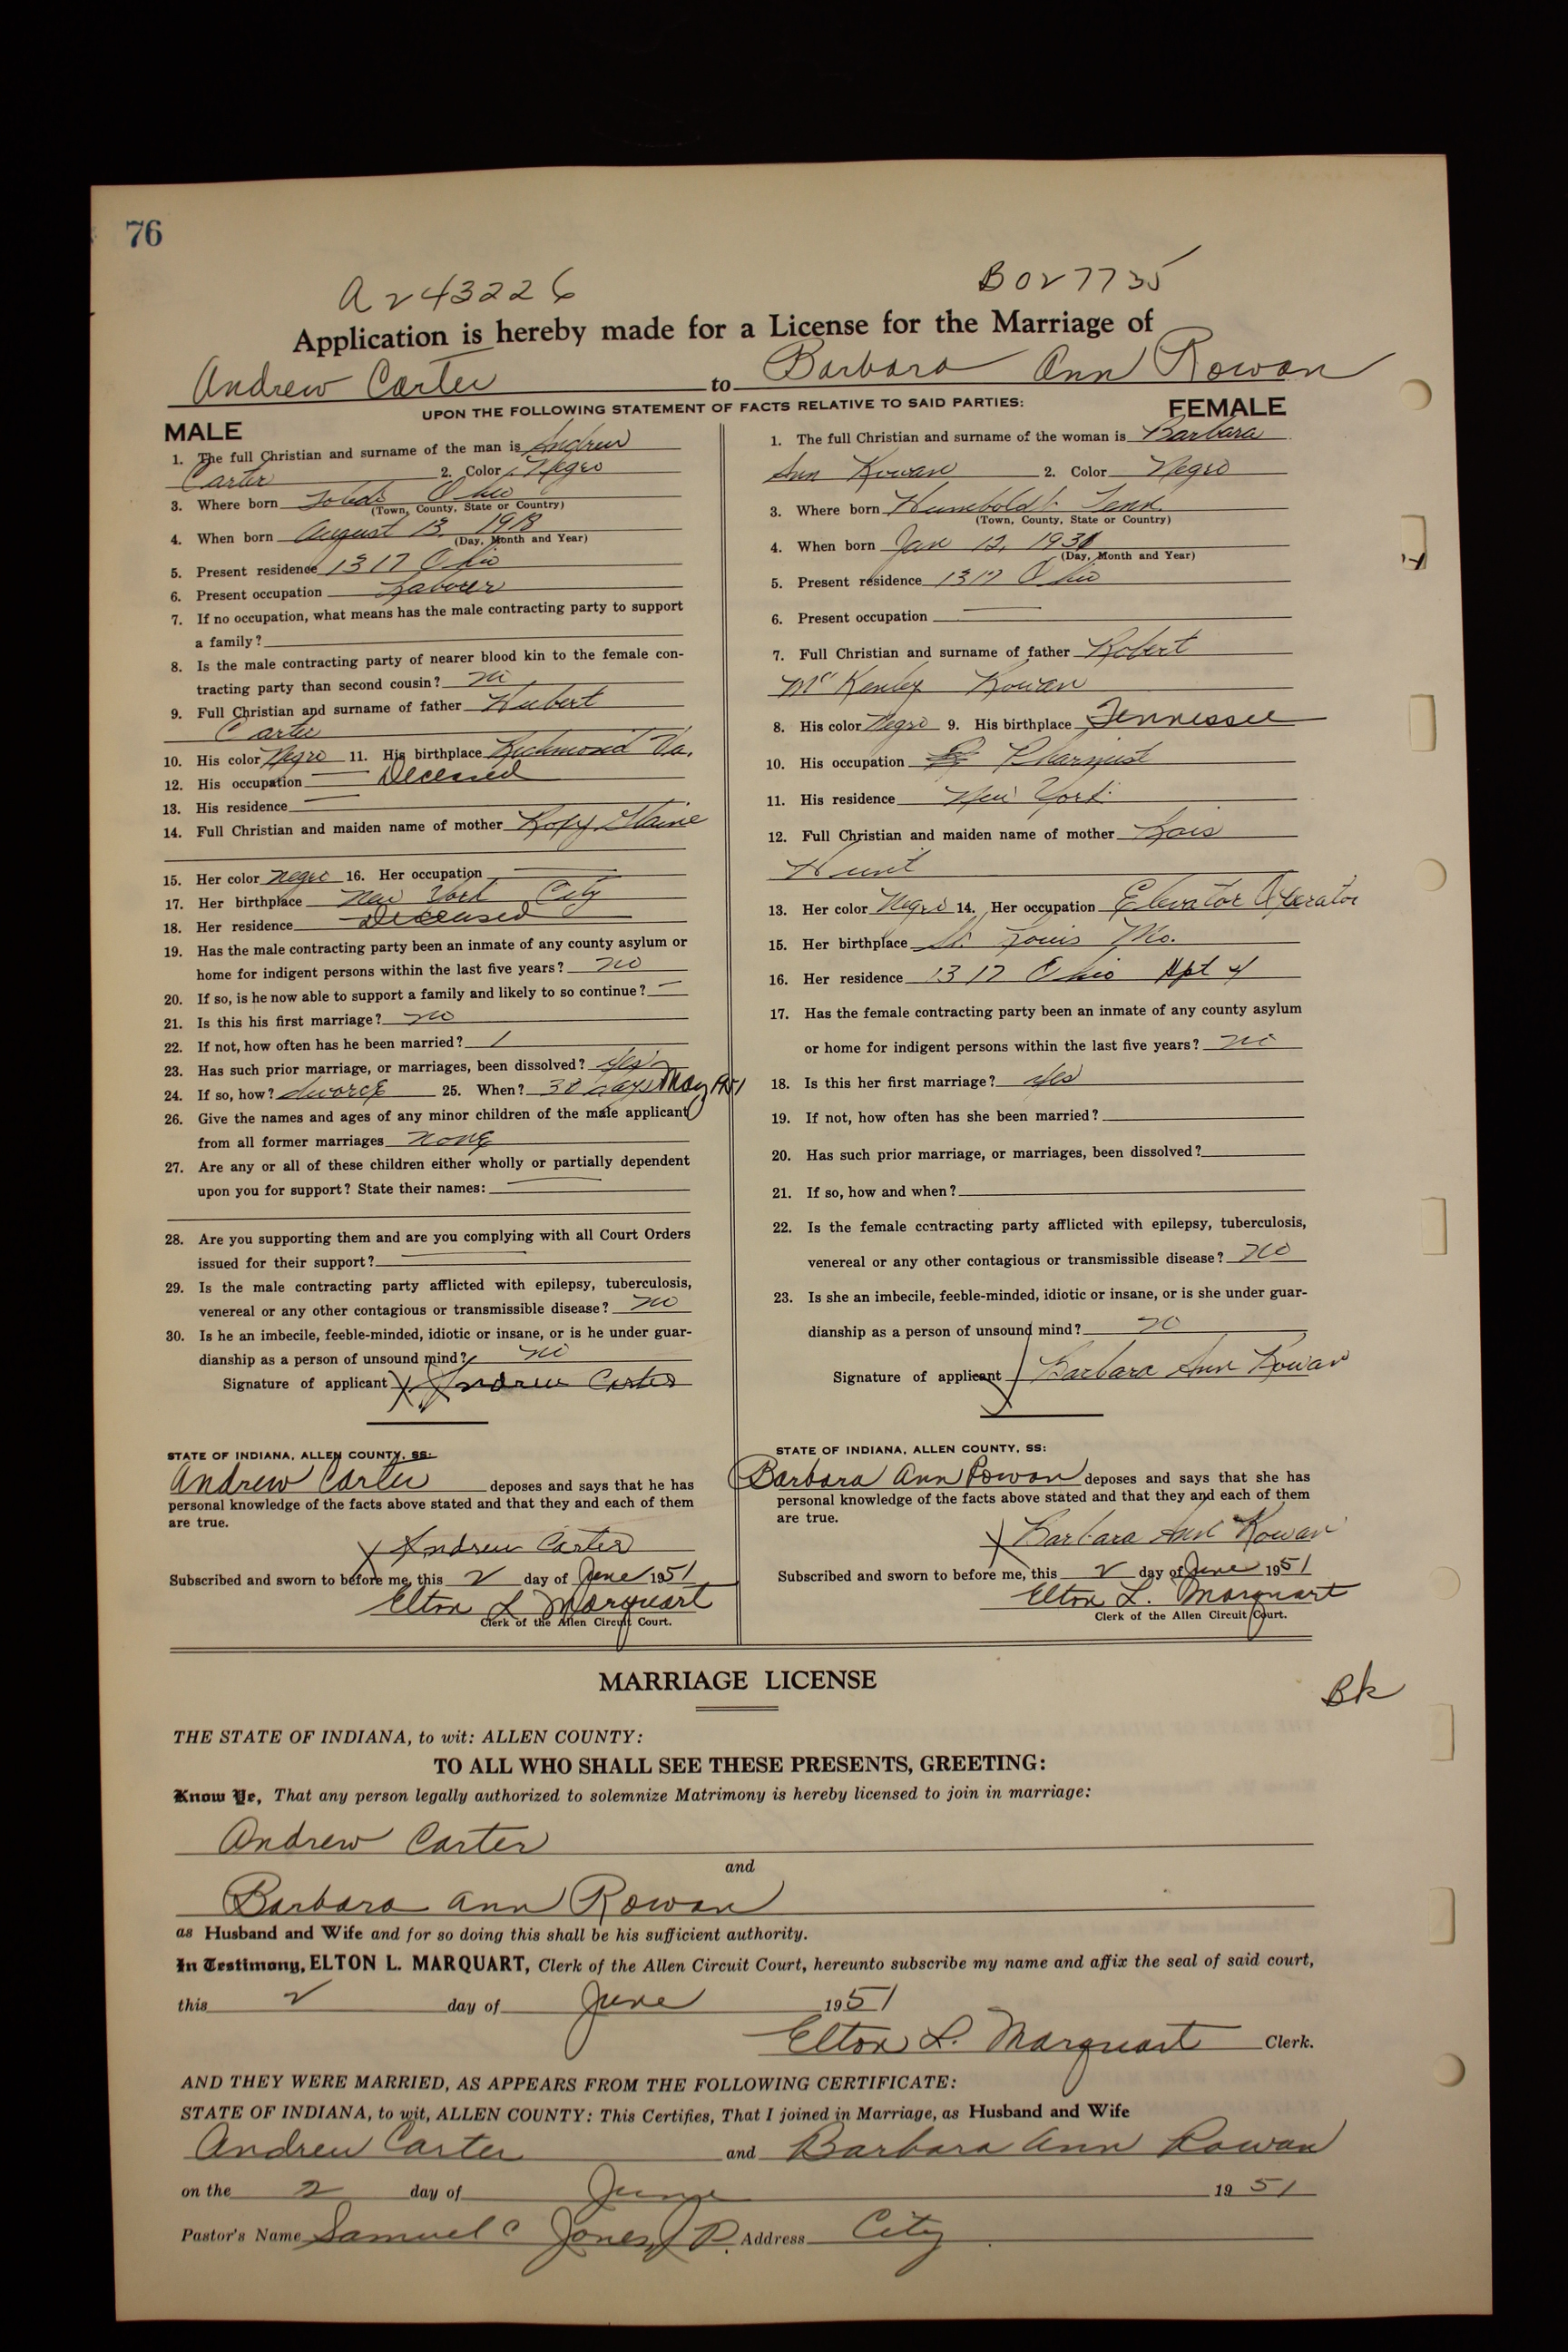 76
A 243226
B 027735
Application is hereby made for a License for the Marriage of
Andrew Carter to Barbara Ann Rowan
UPON THE FOLLOWING STATEMENT OF FACTS RELATIVE TO SAID PARTIES:
MALE
1. The full Christian and surname of the man is Andrew
Carter 2. Color Negro
3. Where born Toledo Ohio
(Town, County, State or Country)
4. When born August 13 1918
(Day, Month and Year)
5. Present residence 1317 Ohio
6. Present occupation Laborer
7. If no occupation, what means has the male contracting party to support
a family?
8. Is the male contracting party of nearer blood kin to the female con-
tracting party than second cousin? no
9. Full Christian and surname of father Hubert
Carter
10. His color Negro 11. His birthplace Richmond Va.
12. His occupation Deceased
13. His residence
14. Full Christian and maiden name of mother
15. Her color Negro 16. Her occupation
17. Her birthplace New York City
18. Her residence Deceased
19. Has the male contracting party been an inmate of any county asylum or
home for indigent persons within the last five years? no
20. If so, is he now able to support a family and likely to so continue?
21. Is this his first marriage? no
22. If not, how often has he been married? 1
23. Has such prior marriage, or marriages, been dissolved? yes
24. If so, how? divorce 25. When? 30 days May 1951
26. Give the names and ages of any minor children of the male applicant
from all former marriages none
27. Are any or all of these children either wholly or partially dependent
upon you for support? State their names:
28. Are you supporting them and are you complying with all Court Orders
issued for their support?
29. Is the male contracting party afflicted with epilepsy, tuberculosis,
venereal or any other contagious or transmissible disease? no
30. Is he an imbecile, feeble-minded, idiotic or insane, or is he under guar-
dianship as a person of unsound mind? no
Signature of applicant X Andrew Carter
STATE OF INDIANA, ALLEN COUNTY, SS:
Andrew Carter deposes and says that he has
personal knowledge of the facts above stated and that they and each of them
are true.
X Andrew Carter
Subscribed and sworn to before me, this 2 day of June 1951
Elton L Marquart
Clerk of the Allen Circuit Court.
FEMALE
1. The full Christian and surname of the woman is Barbara
Ann Rowan 2. Color Negro
3. Where born Humboldt Tenn.
(Town, County, State or Country)
4. When born Jan 12, 1931
(Day, Month and Year)
5. Present residence 1317 Ohio
6. Present occupation
7. Full Christian and surname of father Robert
McKenley Rowan
8. His color Negro 9. His birthplace Tennessee
10. His occupation Pharmist
11. His residence New York
12. Full Christian and maiden name of mother Lois
Hunt
13. Her color Negro 14. Her occupation Elevator Operator
15. Her birthplace St Louis Mo.
16. Her residence 1317 Ohio Apt 4
17. Has the female contracting party been an inmate of any county asylum
or home for indigent persons within the last five years? no
18. Is this her first marriage? yes
19. If not, how often has she been married?
20. Has such prior marriage, or marriages, been dissolved?
21. If so, how and when?
22. Is the female contracting party afflicted with epilepsy, tuberculosis,
venereal or any other contagious or transmissible disease? no
23. Is she an imbecile, feeble-minded, idiotic or insane, or is she under guar-
dianship as a person of unsound mind? no
Signature of applicant X Barbara Ann Rowan
STATE OF INDIANA, ALLEN COUNTY, SS:
Barbara Ann Rowan deposes and says that she has
personal knowledge of the facts above stated and that they and each of them
are true.
X Barbara Ann Rowan
Subscribed and sworn to before me, this 2 day of June 1951
Elton L. Marquart
Clerk of the Allen Circuit Court.
MARRIAGE LICENSE
Bk
THE STATE OF INDIANA, to wit: ALLEN COUNTY:
TO ALL WHO SHALL SEE THESE PRESENTS, GREETING:
Know Ye, That any person legally authorized to solemnize Matrimony is hereby licensed to join in marriage:
Andrew Carter
and
Barbara Ann Rowan
as Husband and Wife and for so doing this shall be his sufficient authority.
In Testimony, ELTON L. MARQUART, Clerk of the Allen Circuit Court, hereunto subscribe my name and affix the seal of said court,
this 2 day of June 1951
Elton L. Marquart Clerk.
AND THEY WERE MARRIED, AS APPEARS FROM THE FOLLOWING CERTIFICATE:
STATE OF INDIANA, to wit, ALLEN COUNTY: This Certifies, That I joined in Marriage, as Husband and Wife
Andrew Carter and Barbara Ann Rowan
on the 2 day of June 1951
Pastor's Name Samuel C Jones, J P. Address City